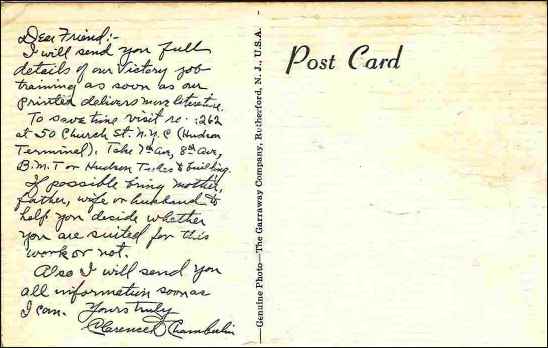 Dear Friend:-
I will send you full
details of our Victory job
training as soon as our
printed delivers more literature.
To save time visit rm. 1262
at 50 Church St. N.Y.C (Hudson
Terminal). Take 7th Ave, 8th Ave,
B.M.T or Hudson Tubes to building.
If possible bring mother,
father, wife or husband to
help you decide whether
you are suited for this
work or not.
Also I will send you
all information soon as
I can. Yours truly
Clarence D Chamberlin
Genuine Photo—The Garraway Company, Rutherford, N. J., U.S.A.
Post Card